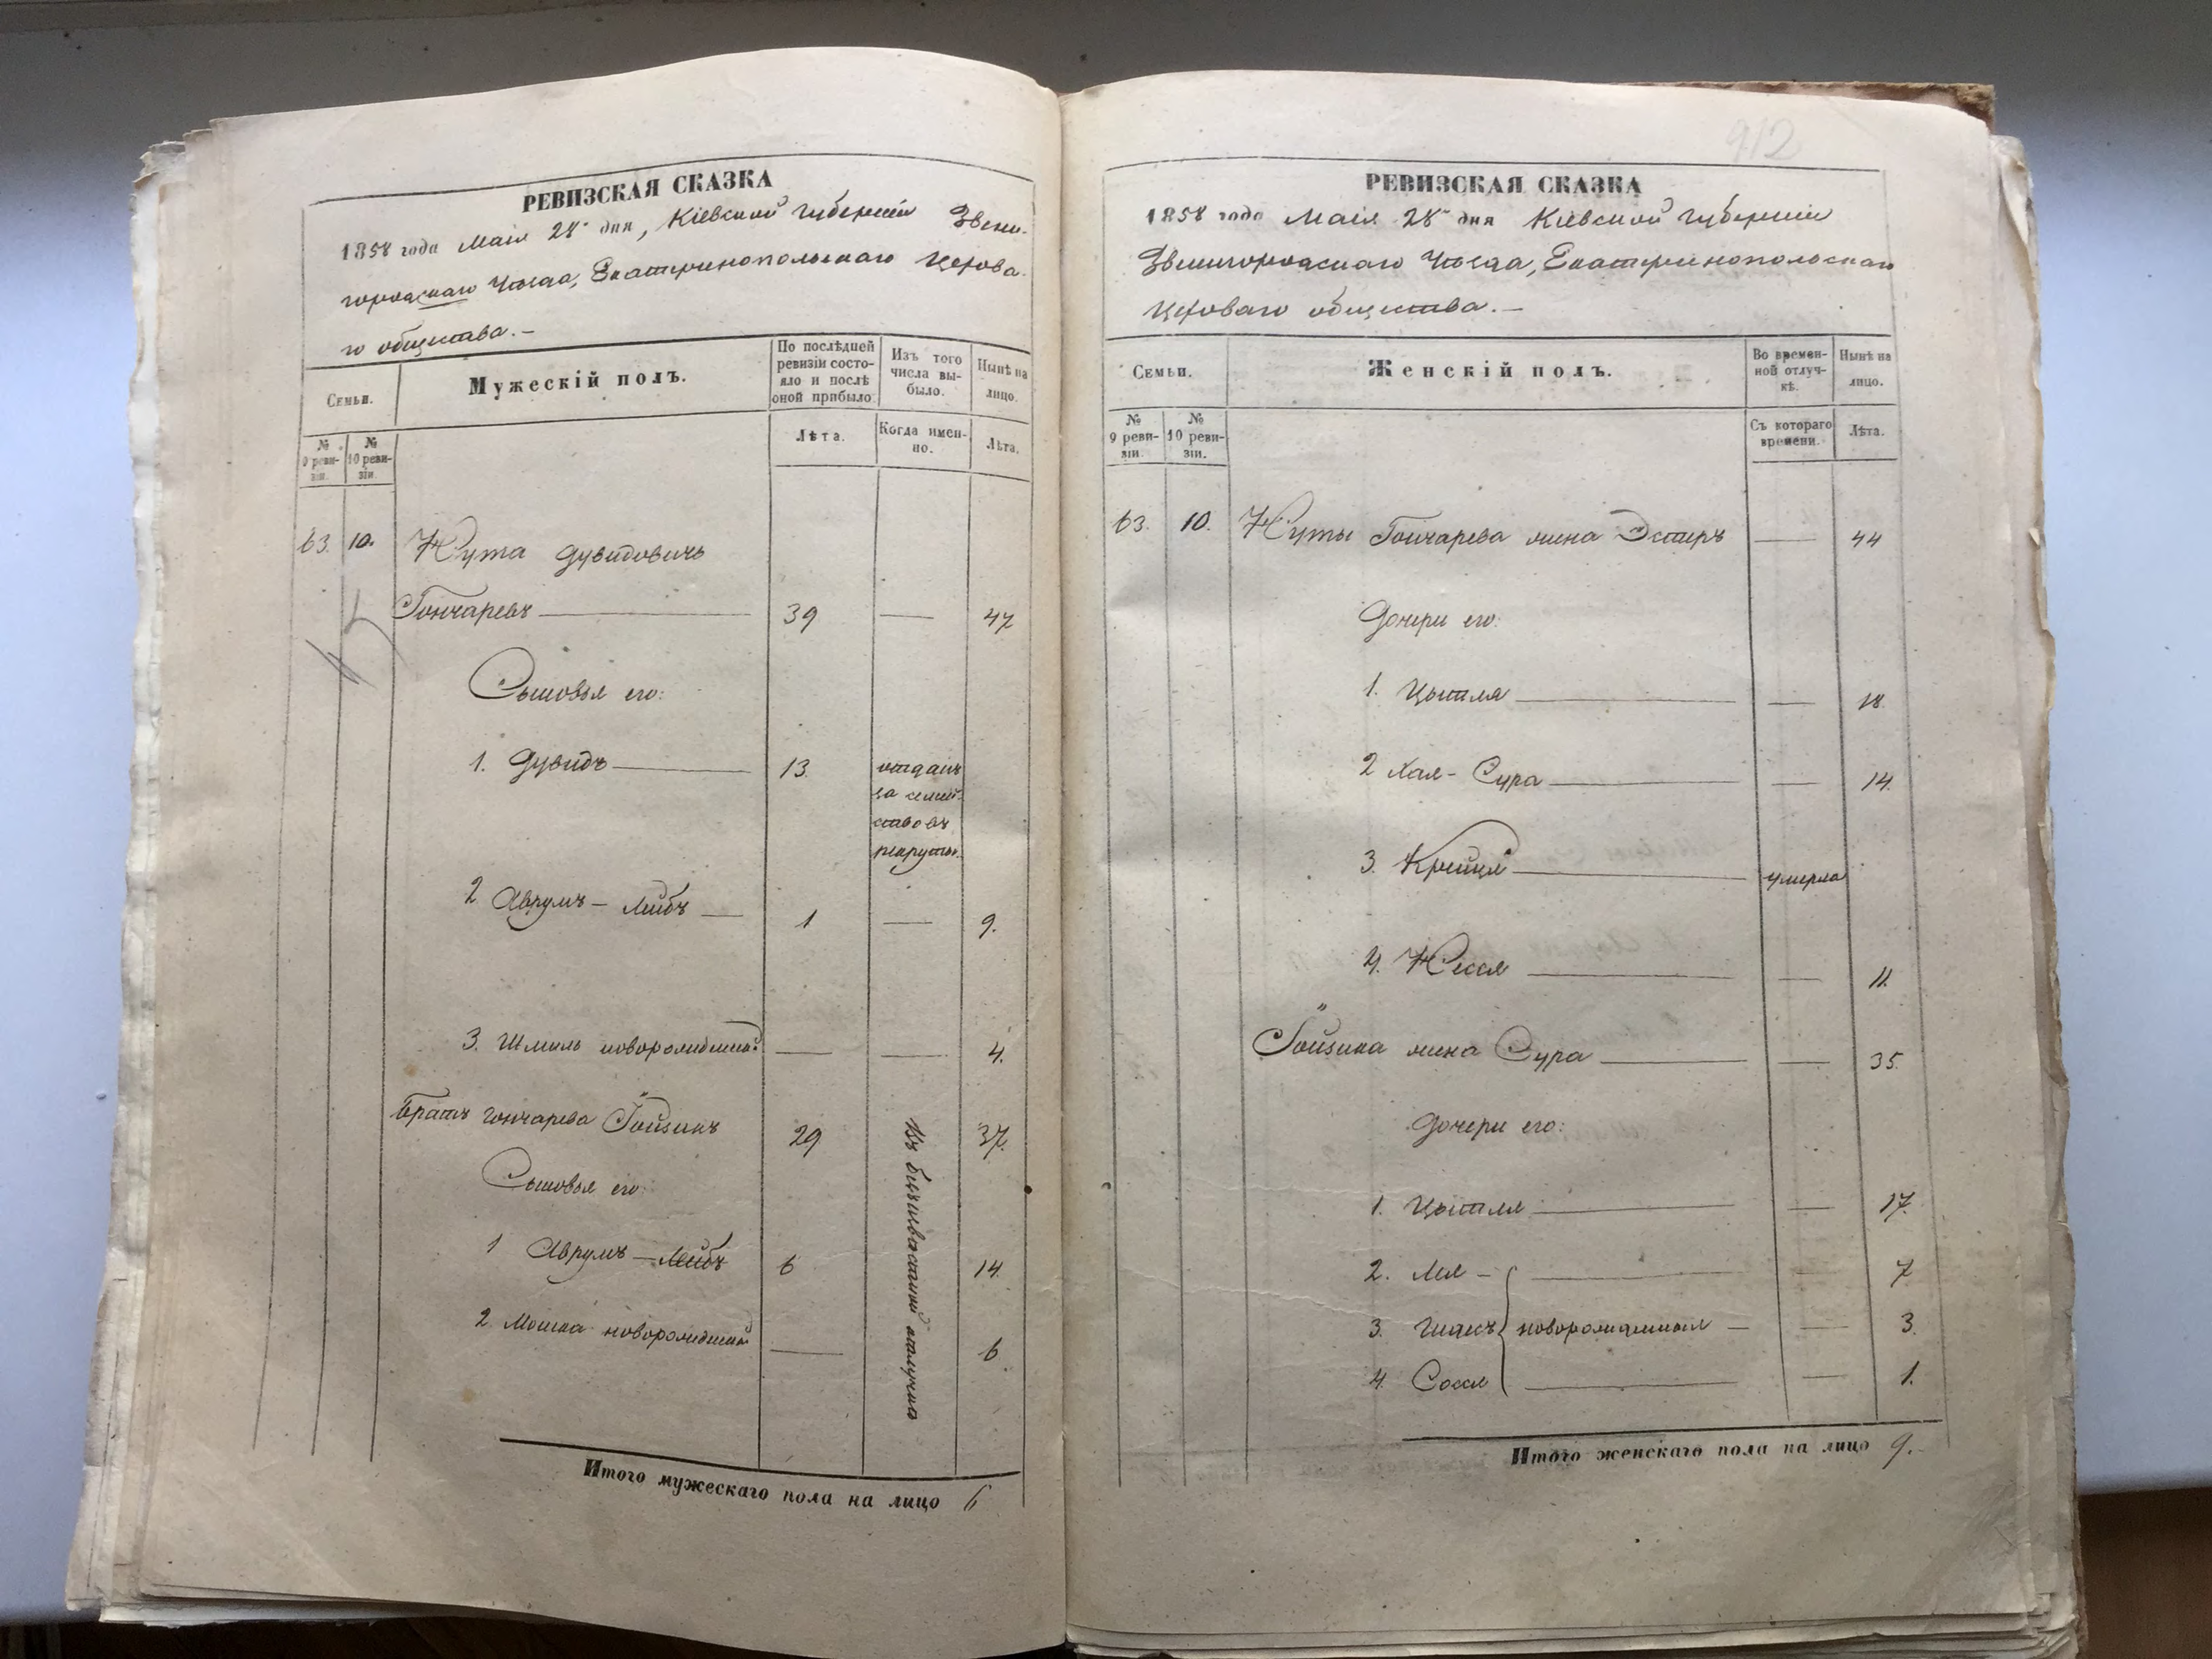 РЕВИЗСКАЯ СКАЗКА
1858 года Маія 28 дня, Кіевской губерніи Звени-
городскаго Уѣзда, Екатеринопольскаго Цехова-
го общества.-
Семьи.
Мужескій полъ.
По послѣдней ревизіи состо-
яло и послѣ
оной прибыло.
Изъ того
числа вы-
было.
Нынѣ на
лицо.
№
9 реви-
зіи.
№
10 реви-
зіи.
Лѣта.
Когда имен-
но.
Лѣта.
63. 10. Нута Дувидовичъ
Гончаревъ 39 — 47
Сыновья его:
1. Дувидъ 13. отданъ
за семей-
ство въ
рекруты.
2 Аврумъ-Лейбъ 1 — 9.
3. Шмиль новорожденный — — 4.
Братъ Гончарева Іойзикъ 29 37.
Сыновья его:
1 Аврумъ-Лейбъ 6 14.
2 Мошка новорожденный — 6
Итого мужескаго пола на лицо 6
912
РЕВИЗСКАЯ СКАЗКА
1858 года Маія 28 дня Кіевской губерніи
Звенигородскаго Уѣзда, Екатеринопольскаго
Цеховаго общества.-
Семьи.
Женскій полъ.
Во времен-
ной отлуч-
кѣ.
Нынѣ на
лицо.
№
9 реви-
зіи.
№
10 реви-
зіи.
Съ котораго
времени.
Лѣта.
63. 10. Нуты Гончарева жена Эстеръ — 44
Дочери его:
1. Цытля — 18
2 Хая-Сура — 14.
3. Крейця умерла
4. Несся — 11.
Іойзика жена Сура — 35.
Дочери его:
1. Цытля — 17.
2. Лея — 7
3. новорожденныя — 3.
4. Сося — 1.
Итого женскаго пола на лицо 9.-